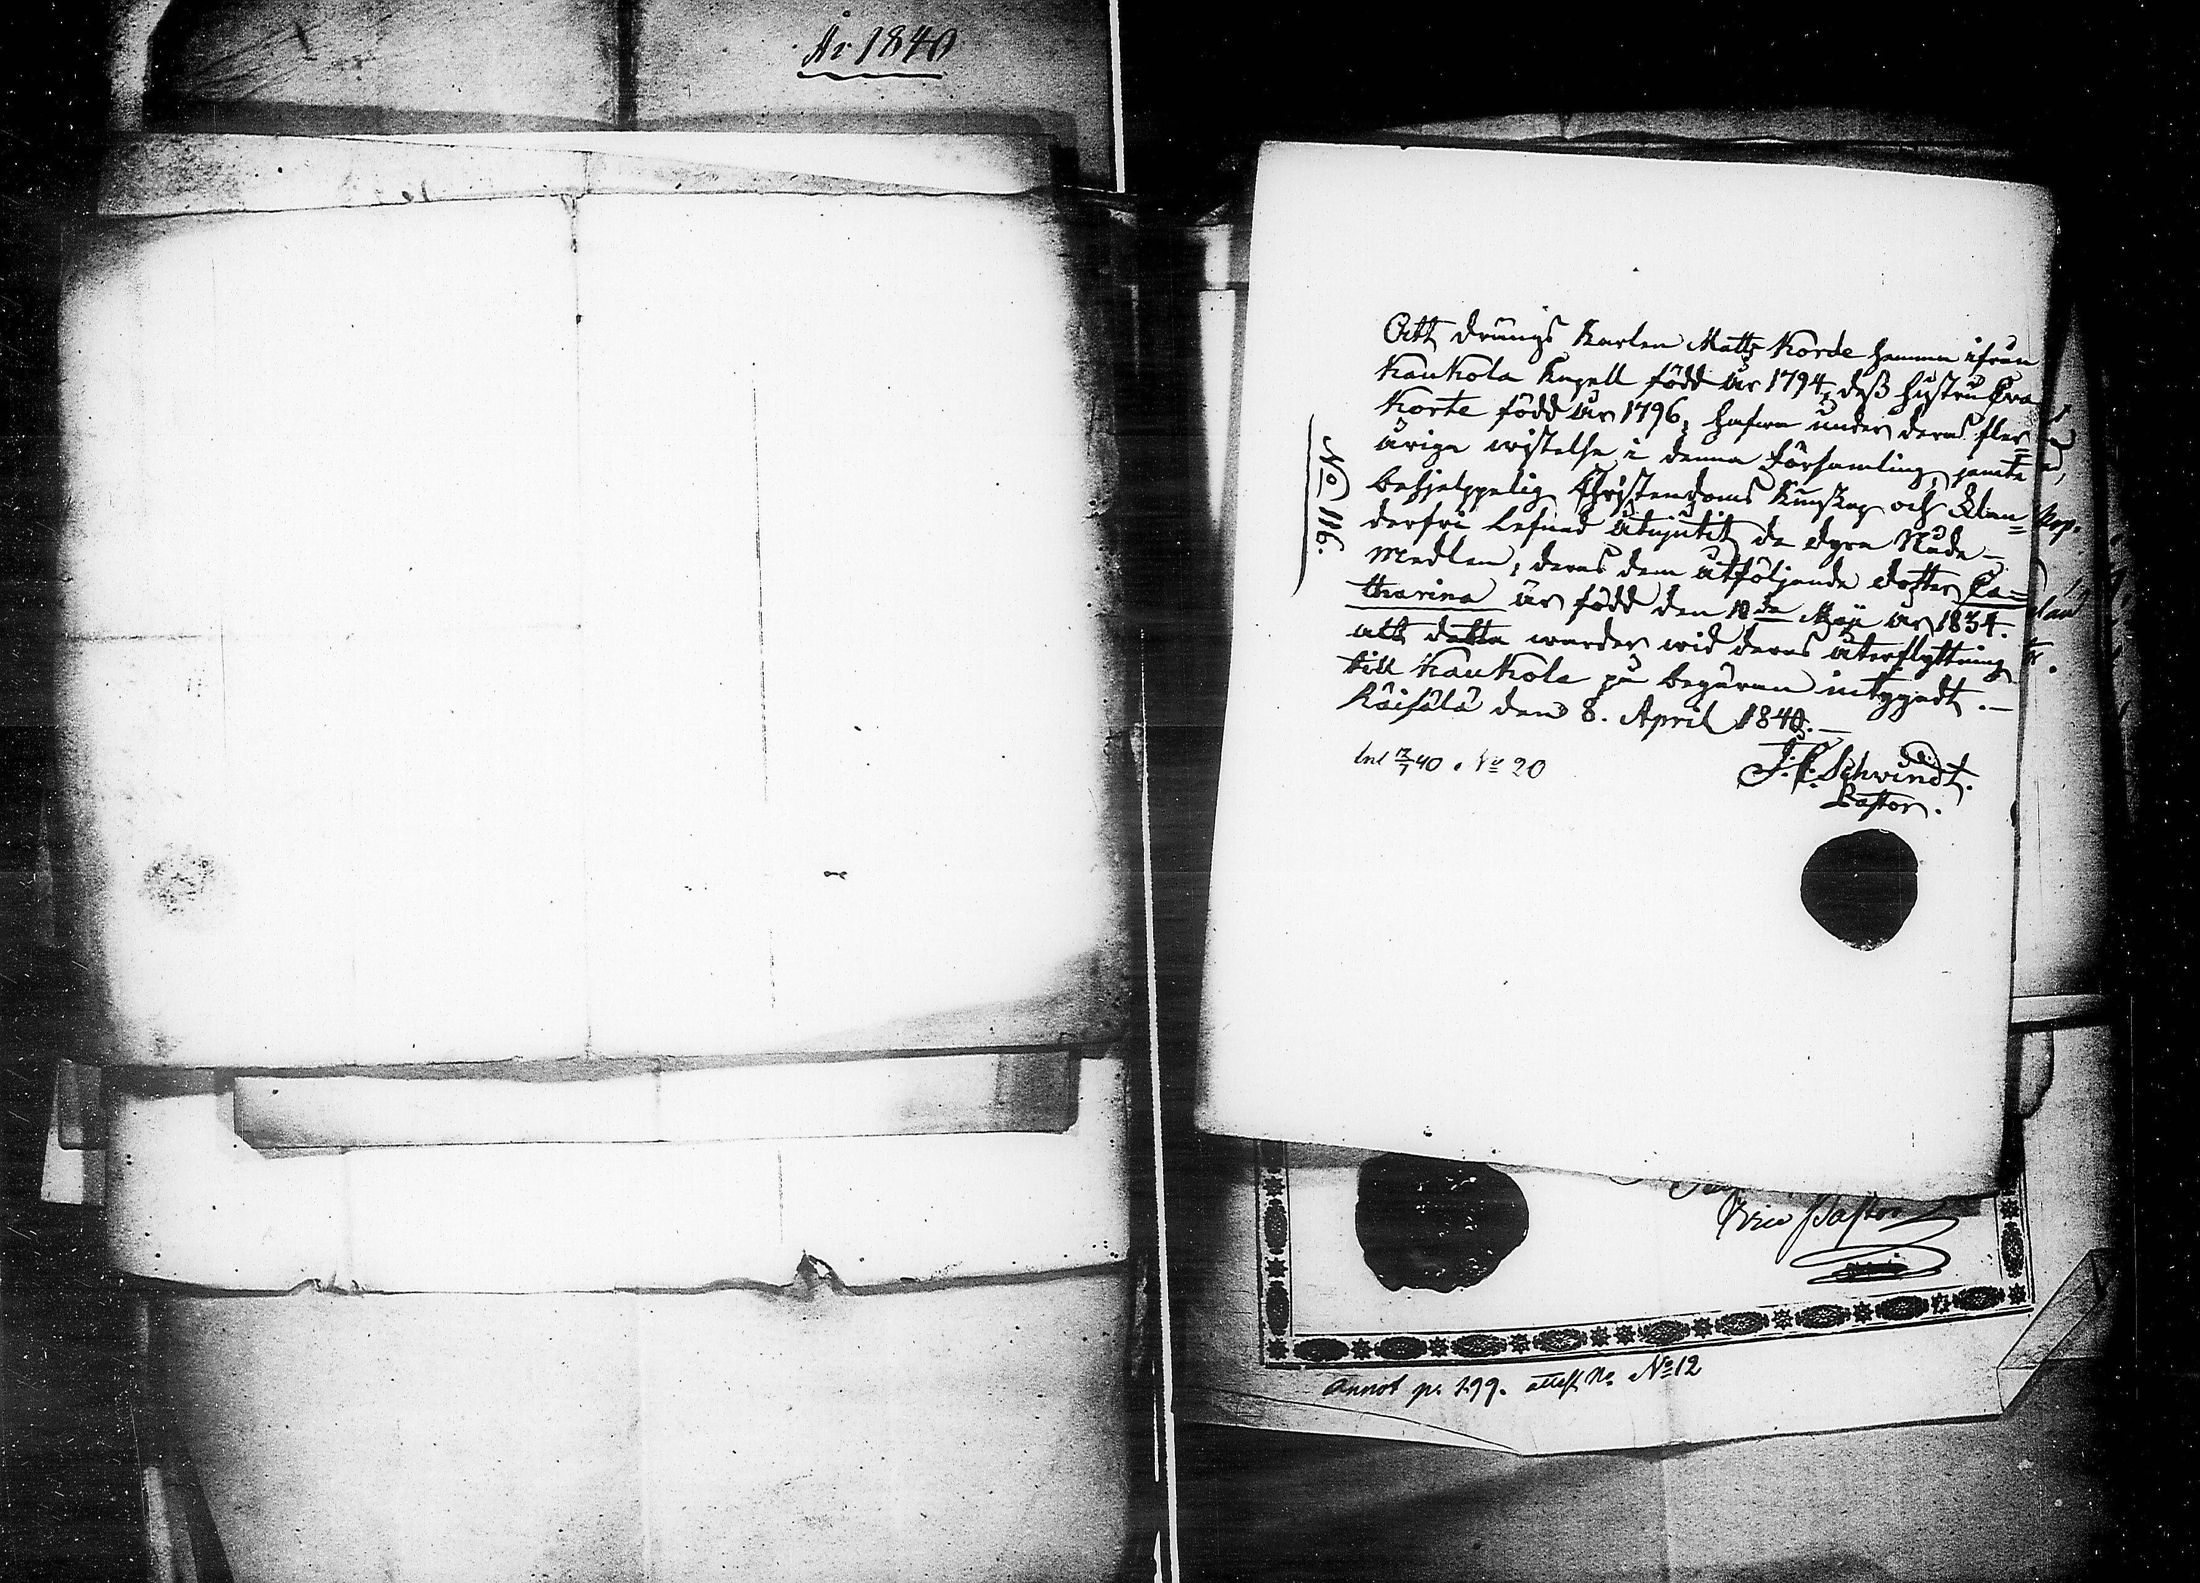 År 1840
Att drängs Karlen Matts Korde hemma ifrån
Kaukola Kapell född år 1794, dess hustru Eva
Korte född år 1796, hafva under deras fler=
åriga wistelse i denna Församling, jemte
behjelppelig Christendoms Kunskap och Klan=
derfri Lefnad åtnjutit de dyra Nåde-
medlen; deras dem åtföljande dotter Ca=
tharina är född den 10de Maji år 1834.
att detta warder wid deras återflyttning
till Kaukola på begäran intygadt.—
Räisälä den 8. April 1840.—
J. F. Schvindt.
Pastor.
Inl 12/7 40. No 20
No 116.
Vice Pastor
Annot p. 299. attest No No 12